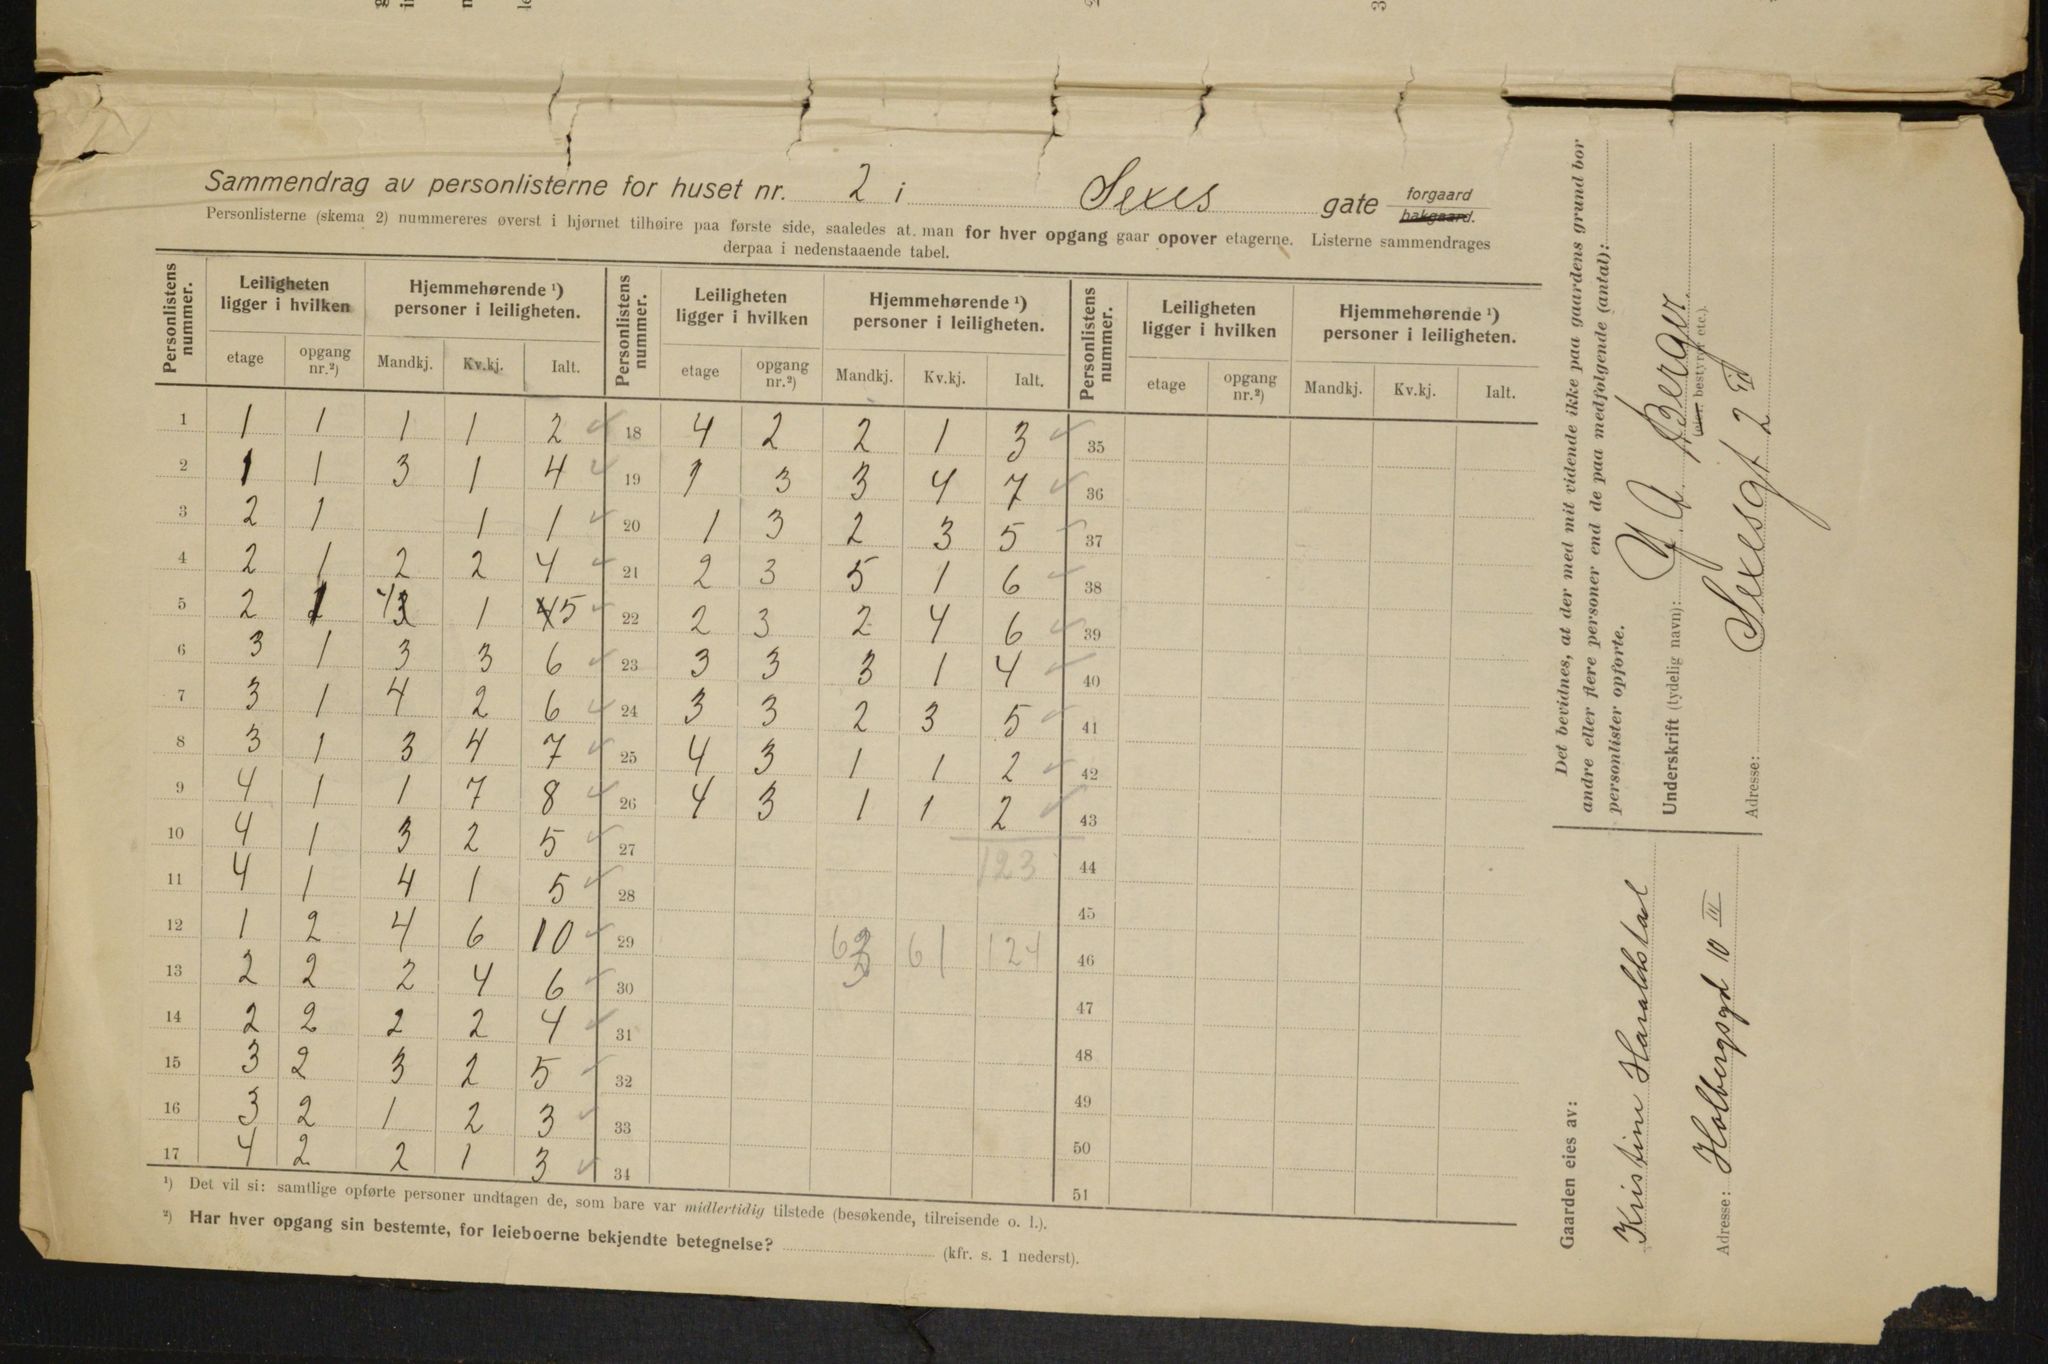 Sammendrag av personlisterne for huset nr. 2 i Sexes gate forgaard bakgaard.
Personlisterne (skema 2) nummereres øverst i hjørnet tilhøire paa første side, saaledes at man for hver opgang gaar opover etagerne. Listerne sammendrages
derpaa i nedenstaaende tabel.
Personlistens nummer. Leiligheten ligger i hvilken Hjemmehørende ¹) personer i leiligheten. Personlistens nummer. Leiligheten ligger i hvilken Hjemmehørende ¹) personer i leiligheten. Personlistens nummer. Leiligheten ligger i hvilken Hjemmehørende ¹) personer i leiligheten.
etage opgang nr.²) Mandkj. Kv.kj. Ialt. etage opgang nr.²) Mandkj. Kv.kj. Ialt. etage opgang nr.²) Mandkj. Kv.kj. Ialt.
1 1 1 1 1 2 18 4 2 2 1 3 35
2 1 1 3 1 4 19 1 3 3 4 7 36
3 2 1 1 1 20 1 3 2 3 5 37
4 2 1 2 2 4 21 2 3 5 1 6 38
5 2 1 4 3 1 4 5 22 2 3 2 4 6 39
6 3 1 3 3 6 23 3 3 3 1 4 40
7 3 1 4 2 6 24 3 3 2 3 5 41
8 3 1 3 4 7 25 4 3 1 1 2 42
9 4 1 1 7 8 26 4 3 1 1 2 43
10 4 1 3 2 5 27 123 44
11 4 1 4 1 5 28 45
12 1 2 4 6 10 29 63 61 124 46
13 2 2 2 4 6 30 47
14 2 2 2 2 4 31 48
15 3 2 3 2 5 32 49
16 3 2 1 2 3 33 50
17 4 2 2 1 3 34 51
¹) Det vil si: samtlige opførte personer undtagen de, som bare var midlertidig tilstede (besøkende, tilreisende o. l.).
²) Har hver opgang sin bestemte, for leieboerne bekjendte betegnelse? (kfr. s. 1 nederst).
Det bevidnes, at der med mit vidende ikke paa gaardens grund bor
andre eller flere personer end de paa medfølgende (antal):
personlister opførte.
Underskrift (tydelig navn): Berger
(eier, bestyrer etc.).
Adresse: Sexesgt 2
Gaarden eies av:
Kristine Haraldstad
Adresse: Holbergsgd 10 III